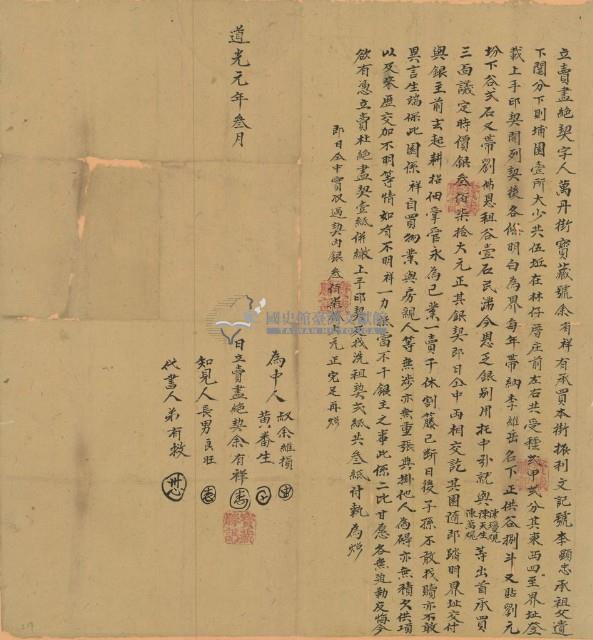 立賣盡絕契字人萬丹街寶藏號余有祥有承買本街振利文記號李顯忠承祖父遺
下鬮分下則埔園壹所大少共伍坵在林仔厝庄前左右共受種六甲貳分其東西四至界址登
載上手印契開列契後各份明白為界每年帶納李維岳名下正供谷捌斗又貼劉元
份下谷弍石又帶劉佛恩租谷壹石民滿今愿乏銀別用托中引就與陳天生陳萬燦等出首承買
三面議定時價銀叁佰柒拾大元正其銀契即日仝中兩相交訖其園隨即踏明界址交付
與銀主前去起耕招佃掌管永為己業一賣千休割藤已斷日後子孫不敢找贖亦不敢
異言生端保此園係祥自買物業與房親人等無涉亦無重張典掛他人為碍亦無積欠供項
以及來歷交加不明等情如有不明祥一力抵當不干銀主之事此係二比甘愿各無迫勒反悔今
欲有憑立賣杜絕盡契壹紙併繳上手印契找洗租契弍紙共叁紙付執為炤
即日仝中實收過契內銀叁佰柒拾大元正完足再炤
國史館臺灣文獻館
TAIWAN HISTORICA
為中人 叔余維損
黃番生
日立賣盡絕契余有祥
知見人長男良旺
代書人弟有牧
道光元年叁月